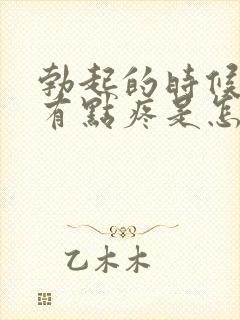 勃起的時候
有點疼是怎
乙木木